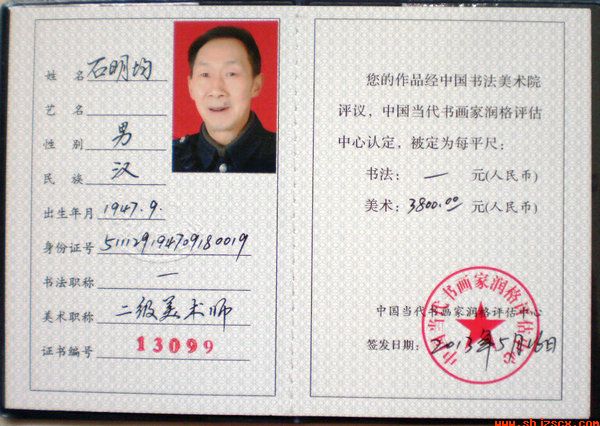 姓名 石明均
艺名
性别 男
民族 汉
出生年月 1947.9.
身份证号 511129194709180019
书法职称 一
美术职称 二级美术师
证书编号 13099
您的作品经中国书法美术院
评议，中国当代书画家润格评估
中心认定，被定为每平尺：
书法： 一 元(人民币)
美术：3800.00 元(人民币)
中国当代书画家润格评估中心
签发日期：2013年5月16日
中国当代书画家润格评估中心
www.sbjzscx.com